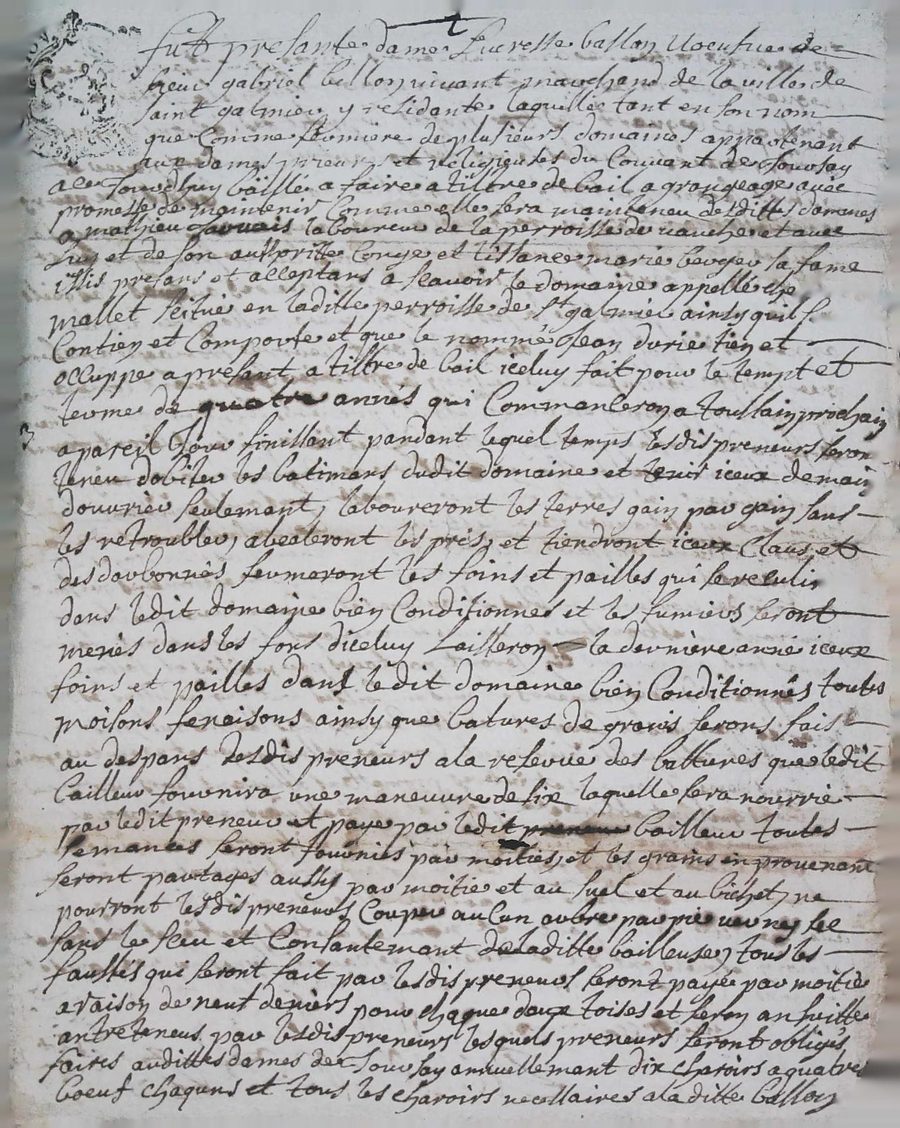 fust presante dame Lucresse ballon voeufue de
sieur gabriel billon vivant marchand de la ville de
saint galmier y residante laquelle tant en son nom
que comme fermiere de plusieurs domaines appartenant
aux dames prieure et religieuses du Couvant de Jourssay
a ce jourdhuy baillé a faire a tiltre de bail a grangeage avec
promesse de maintenir comme elle sera maintenue desdittes dammes
a mathieu laboureur de la perroisse de et avec
luy et de son authoritte Conge et lissance marie berger sa fame
issis presans et acceptans a scavoir le domaine appellé che
mallet scitué en laditte perroisse de st galmier ainsy quil se
Contien et Comporte et que le nommé Jean durie tien et
occuppe a presant a tiltre de bail iceluy fait pour le tempt et
terme de quatre annés qui Commanceron a toussain prochain
a pareil Jour finissant pandant lequel temps lesdis preneurs seron
teneu dabiter les batimans dudit domaine et tenir iceux de main
douvrier seulemant, laboureront les terres gain par gain sans
les retroubler, abealeront les prés, et tiendront iceux Claus et
desdarbonnés fermeront les foins et pailles qui se
dans ledit domaine bien Conditionnes et les fumiers seront
menés dans les fons diceluy Laisseron la derniere anné iceux
foins et pailles dans ledit domaine bien Conditionnés toutes
moisons fenaisons ainsy que batures de grains serons fais
au despans desdis preneurs a la reserve des battures que ledit
bailleur fournira une maneuvre de six laquelle sera nourrie
par ledit preneur et paye par ledit preneur bailleur toutes
semances seront fournies par moities, et les grains en provenant
seront partages aussy par moitie et au suel et au bichet, ne
pourront lesdis preneurs Couper aucun aubre par pie
sans le sceu et Consantemant de laditte bailleuse, tous les
faussés qui seront fait par lesdis preneurs seront payée par moitié
a raison de neuf deniers pour chaque doux toises et seron ansuitte
antreteneus par lesdis preneurs lesquels preneurs seront obligés
faires ausdittes dames de Jourssay annuellemant dix charois a quatre
boeuf chaquns et tous les charoirs necessaires a la ditte ballon